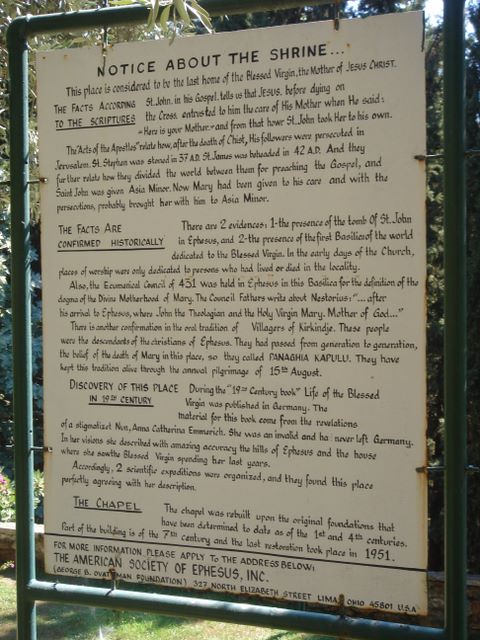 NOTICE ABOUT THE SHRINE...
This place is considered to be the last home of the Blessed Virgin, the Mother of JESUS CHRIST.
THE FACTS ACCORDING
TO THE SCRIPTURES
St. John, in his Gospel, tells us that JESUS, before dying on
the Cross, entrusted to him the care of His Mother when He said:
"Here is your Mother" and from that hour St. John took Her to his own.
The "Acts of the Apostles" relate how, after the death of Chist, His followers were persecuted in
Jerusalem. St. Stephen was stoned in 37 A.D. St. James was beheaded in 42 A.D. And they
further relate how they divided the world between them for preaching the Gospel, and
Saint John was given Asia Minor. Now Mary had been given to his care and with the
persecutions, probably brought her with him to Asia Minor.
THE FACTS ARE
CONFIRMED HISTORICALLY
There are 2 evidences: 1-the presence of the tomb Of St. John
in Ephesus, and 2-the presence of the first Basilica of the world
dedicated to the Blessed Virgin. In the early days of the Church,
places of worship were only dedicated to persons who had lived or died in the locality.
Also, the Ecumenical Council of 431 was held in Ephesus in this Basilica for the definition of the
dogma of the Divine Motherhood of Mary. The Council Fathers write about Nestorius: "...after
his arrival to Ephesus, where John the Theologian and the Holy Virgin Mary. Mother of God..."
There is another confirmation in the oral tradition of Villagers of Kirkindje. These people
were the descendants of the christians of Ephesus. They had passed from generation to generation,
the belief of the death of Mary in this place, so they called PANAGHIA KAPULU. They have
kept this tradition alive through the annual pilgrimage of 15th August.
DISCOVERY OF THIS PLACE
IN 19TH CENTURY
During the "19th Century book" Life of the Blessed
Virgin was published in Germany. The
material for this book come from the revelations
of a stigmatized Nun, Anna Catherina Emmerich. She was an invalid and had never left Germany.
In her visions she described with amazing accuracy the hills of Ephesus and the house
where she saw the Blessed Virgin spending her last years.
Accordingly, 2 scientific expeditions were organized, and they found this place
perfectly agreeing with her description.
THE CHAPEL
The chapel was rebuilt upon the original foundations that
have been determined to date as of the 1st and 4th centuries.
Part of the building is of the 7th century and the last restoration took place in 1951.
FOR MORE INFORMATION PLEASE APPLY TO THE ADDRESS BELOW:
THE AMERICAN SOCIETY OF EPHESUS, INC.
(GEORGE B. FOUNDATION) 327 NORTH ELIZABETH STREET LIMA, OHIO 45801 U.S.A